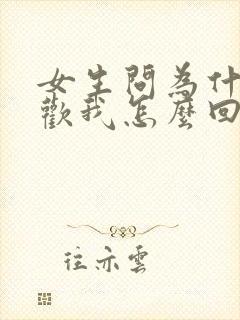 女生問為什
歡我怎麼回
往亦雲